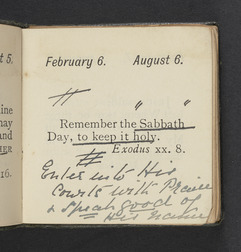 t 5.
February 6. August 6.
" "
Remember the Sabbath
Day, to keep it holy.
Exodus xx. 8.
ine
may
and
HER
16.
Enter into His
Courts with Praise
& Speak good of
His name